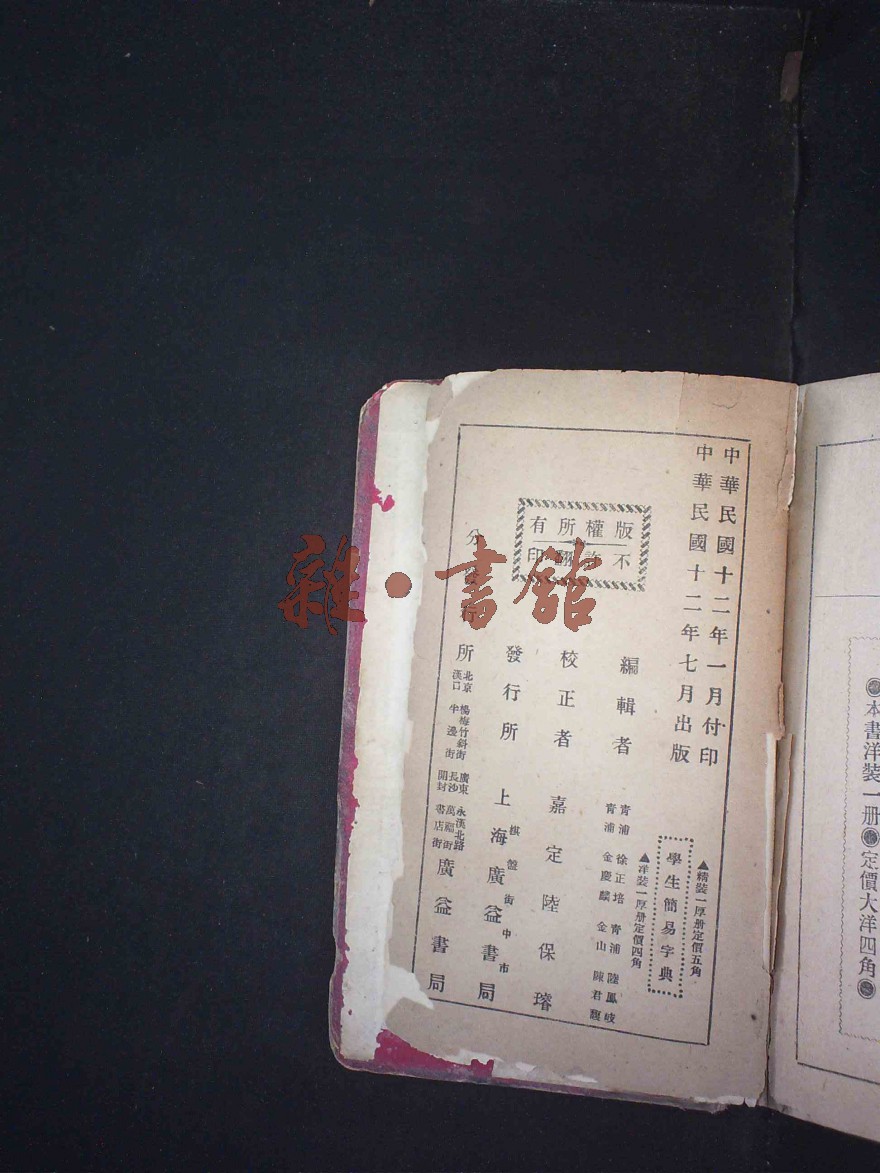 中華民國十二年一月付印
中華民國十二年七月出版
▲精裝一厚册定價五角
學生簡易字典
▲洋裝一厚册定價四角
版權所有
不許翻印
編輯者
青浦 徐正培 青浦 陸鳳岐
青浦 金慶麟 金山 陳君馥
校正者 嘉定陸保璿
發行所 上海棋盤街中市廣益書局
分發行所
北京 楊梅竹斜街 廣東 永漢北路
長沙 萬福街
漢口 半邊街 開封 書店街
廣益書局
本書洋裝一册●定價大洋四角
雜·書館